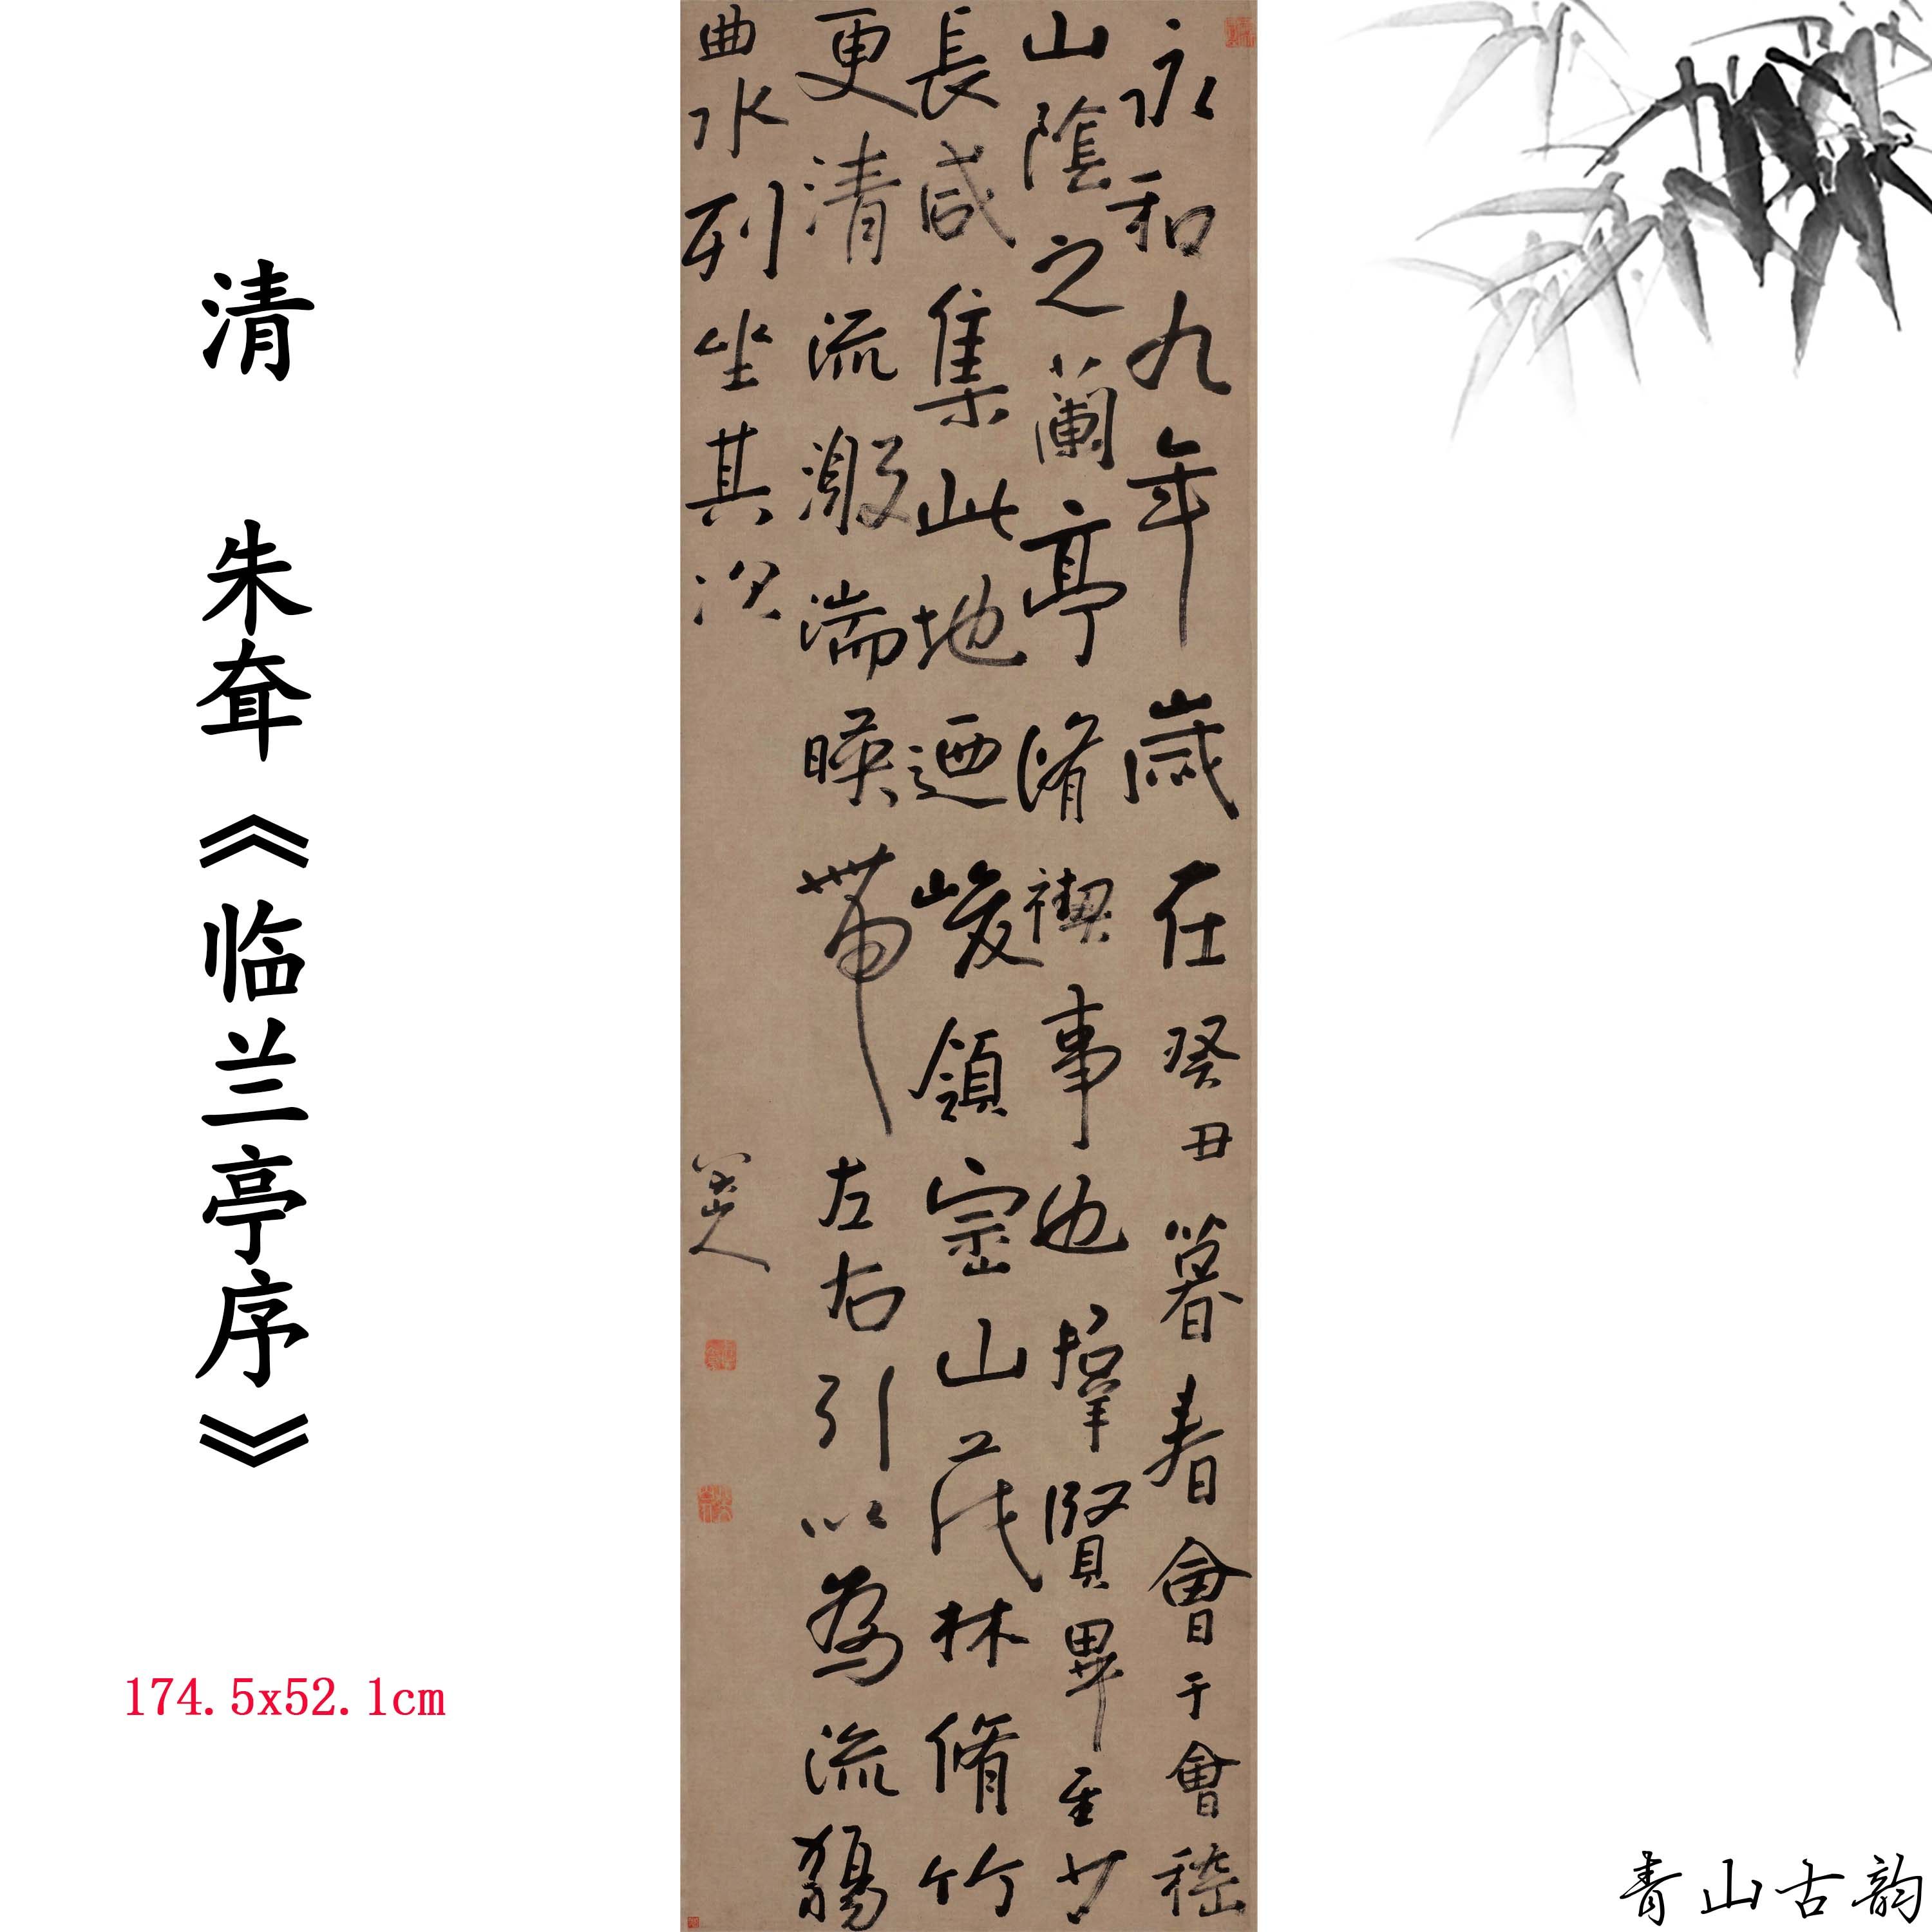 清 朱耷《临兰亭序》
174.5x52.1cm
永和九年歲在癸丑暮春會于會稽
山陰之蘭亭脩禊事也羣賢畢至少
長咸集此地迺峻領崇山茂林脩竹
更清流激湍暎帶左右引以為流觴
曲水列坐其次
八大山人
青山古韵